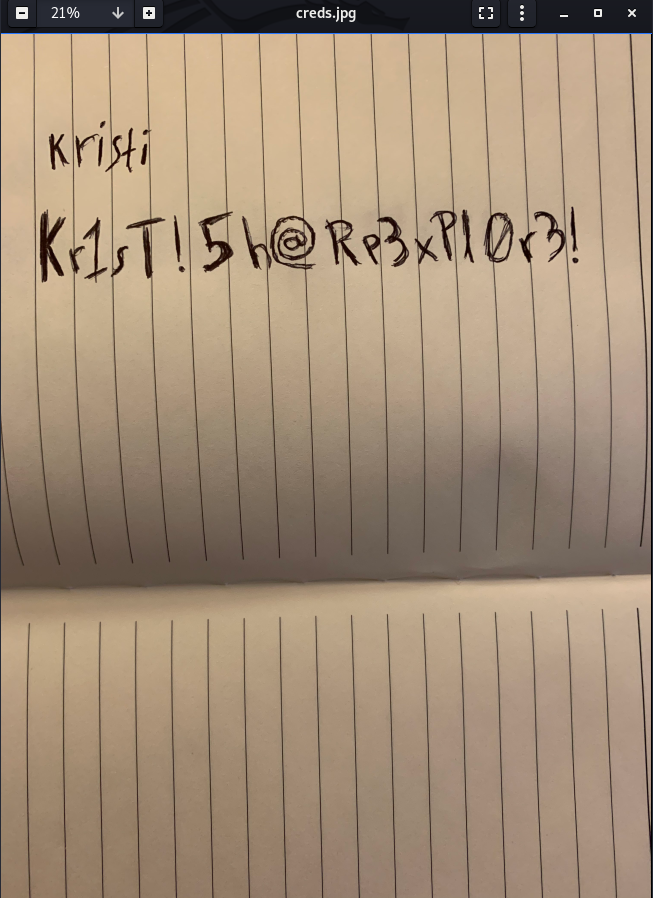 21%
creds.jpg
kristi
Kr1sT!5h@Rp3xPl0r3!